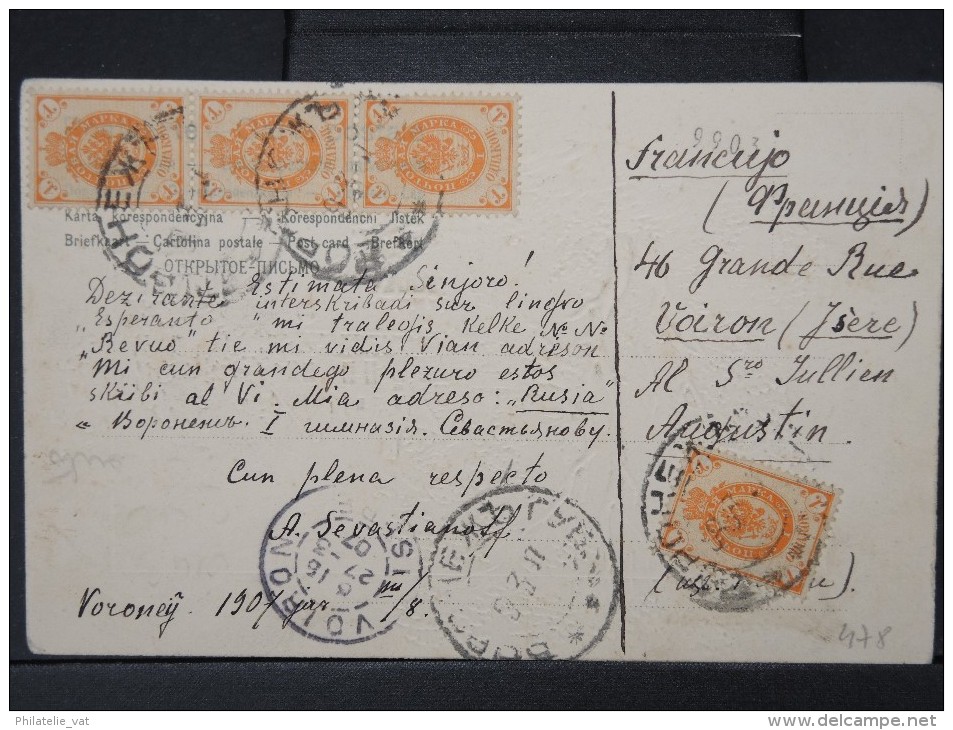 МАРКА
МАРКА
МАРКА
Karta korespondencyjna — Korespondenční lístek
Briefkaart — Cartolina postale — Post card — Brefkort
ОТКРЫТОЕ ПИСЬМО
Estimata Sinjoro!
Dezirante interskribadi sur lingvo
„Esperanto" mi tralegis kelke №№
„Revuo" tie mi vidis Vian adreson
Mi cun grandego plezuro estos
skribi al Vi. Mia adreso: „Rusia"
Воронежъ. I гимназія. Севастьянову.
Cun plena respecto
A. Sevastianoff.
Voroneÿ 1907 jar /8
Francujo
(Франція)
46 Grande Rue
Voiron (Jsere)
Al Sro Jullien
Augustin.
МАРКА
VOIRON
ISÈRE
478
Philatelie_vat
http://www.delcampe.net